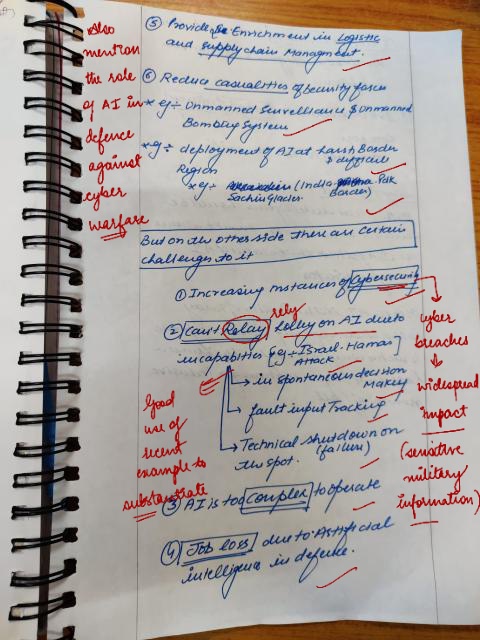 ⑤ Provide Enrichment in Logistic
and supply chain Managment.
⑥ Reduce casualities of Security forces
* eg ÷ Unmanned Survelliance & Unmanned
Bombing System
* eg ÷ deployment of AI at harsh Border
& difficult
Region
* eg ÷ (Indo- Pak
Border)
Sachin Glacier.
Also
mention
the role
of AI in
defence
against
cyber
warfare
But on the other side there are certain
challenges to it
① Increasing instances of Cybersecurity
rely
② Can't Relay relay on AI due to
incapabilities [eg ÷ Israel-Hamas]
Attack
→ in spontaneous decision
Making
→ fault input Tracking
→ Technical shutdown on
(failure)
the spot.
cyber
breaches
↓
widespread
impact
(sensitive
military
information)
Good
use of
recent
example to
substantiate
③ AI is too complex to operate
④ Job loss due to Artificial
intelligence in defence.